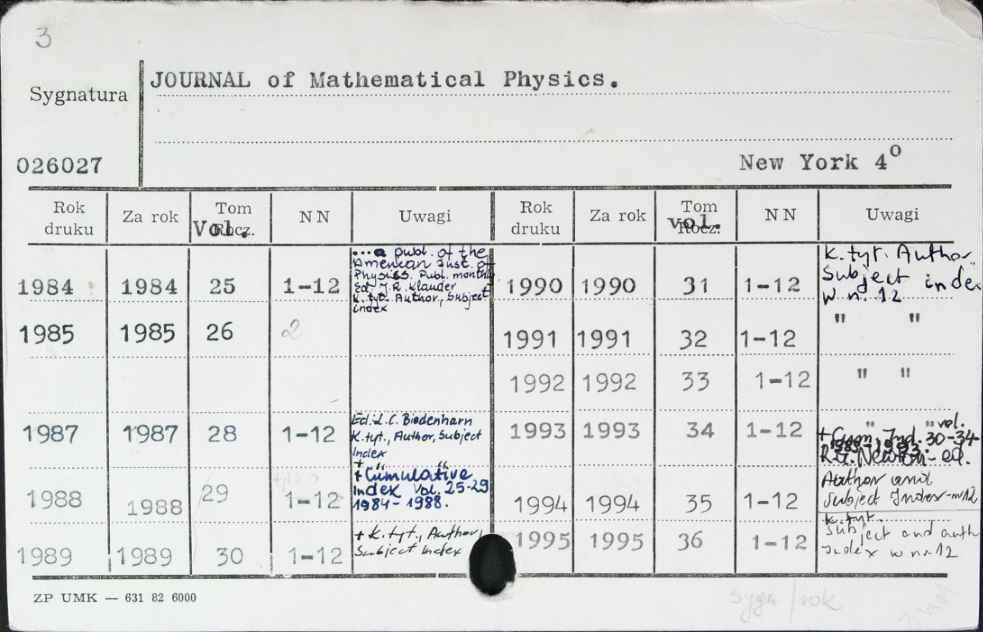 3
Sygnatura
JOURNAL of Mathematical Physics.
026027
New York 4⁰
Rok druku Za rok Tom Rocz. Vol. NN Uwagi Rok druku Za rok Tom Rocz. vol. NN Uwagi
...a publ. of the
American Inst. of
Physics. Publ. monthly
Ed. J.R. Klauder
K.tyt. Author, Subject
index
1984 1984 25 1-12
1985 1985 26 2
Ed. L.C. Biedenharn
K.tyt., Author, Subject
Index
1987 1987 28 1-12
+ " "
+ Cumulative
Index Vol. 25-29
1984-1988.
1988 1988 29 1-12
+ K.tyt., Author,
Subject index
1989 1989 30 1-12
K.tyt. Author.
Subject index
w n. 12
1990 1990 31 1-12
1991 1991 32 1-12 " "
1992 1992 33 1-12 " "
1993 1993 34 1-12
" " vol.
+ Cum. Ind. 30-34
R.G. Newton - ed.
Author and
Subject Index - nr 12
1994 1994 35 1-12
K.tyt.
Subject and auth
Index w nr 12
1995 1995 36 1-12
ZP UMK — 631 82 6000
sygn/rok